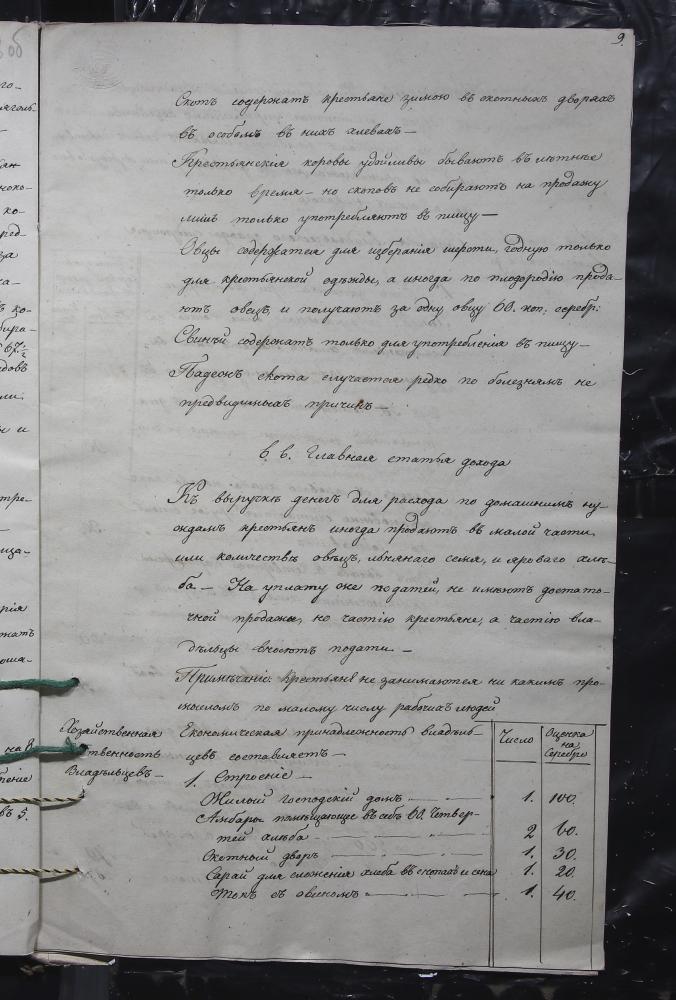 9.
Скотъ содержатъ крестьяне зимою въ скотныхъ дворахъ
въ особомъ въ нихъ хлевахъ —
Крестьянскія коровы удойливы бываютъ въ лѣтнѣе
только время — но скоповъ не собираютъ на продажу
лишь только употребляютъ въ пищу —
Овцы содержатся для изберанія шерсти, годную только
для крестьянской одѣжды, а иногда по плодородію прода-
ютъ овецъ, и получаютъ за одну овцу 60. коп. серебр:
Свинѣй содержатъ только для употребленія въ пищу —
Падежъ скота случается редко по болезнямъ не
предвидимыхъ причинъ —
в. в. Главная статья дохода
Къ выручкѣ денегъ для расхода по домашнимъ ну-
ждамъ крестьянъ иногда продаютъ въ малой части
или количествѣ овѣцъ, лѣнянаго семя, и яроваго хлѣ-
ба — На уплату же податей, не имѣютъ достато-
чной продажи, но частію крестьяне, а частію вла-
дѣльцы вносютъ подати —
Примѣчаніе: Крестьянѣ не занимаются ни какимъ про-
мысломъ по малому числу рабочихъ людей
Хозяйственная
ственность
Владѣльцевъ —
Економическая принадлежность владѣль-
цевъ составляетъ —
Число
Оценка
на
Серебро
1. Строеніе —
Жилый господскій домъ — 1. 100.
Амбаръ помѣщающее въ себѣ 60 Четвер-
тей хлѣба — 2 60.
Скотный дворъ — 1. 30.
Сарай для сложенія хлеба въ снопахъ и сена 1. 20.
Токъ съ овиномъ — 1. 40.